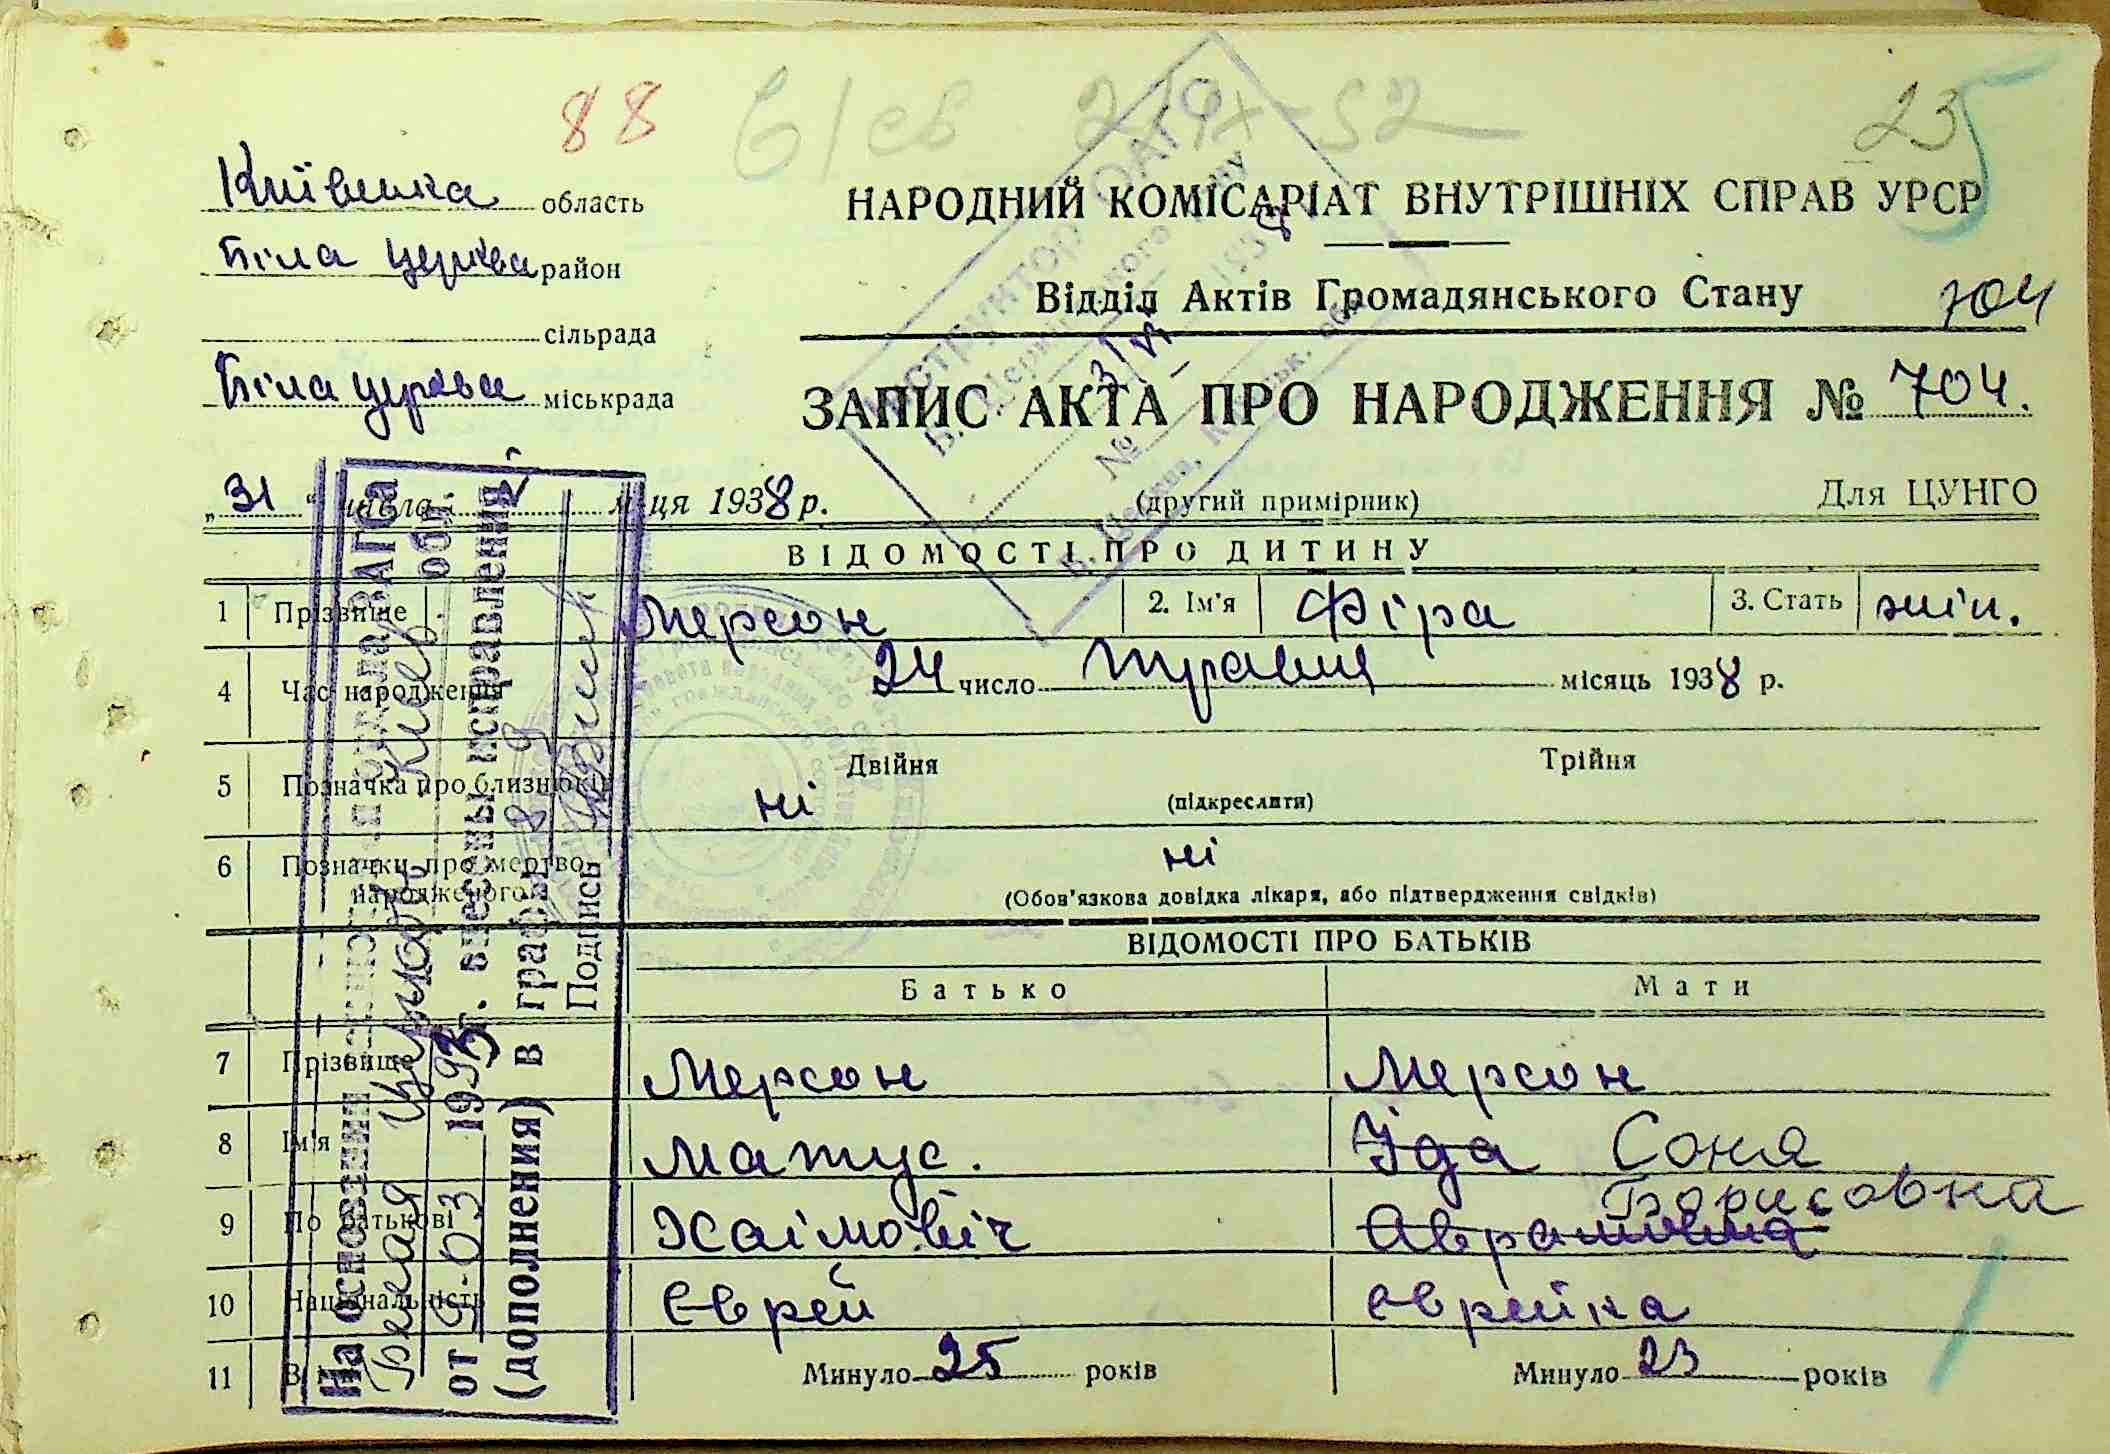 88
23
Київська область
НАРОДНИЙ КОМІСАРІАТ ВНУТРІШНІХ СПРАВ УРСР
Біла Церква район
Відділ Актів Громадянського Стану
704
сільрада
Біла Церква міськрада
ЗАПИС АКТА ПРО НАРОДЖЕННЯ № 704.
„31“ числа V м-ця 1938 р.
(другий примірник)
Для ЦУНГО
ВІДОМОСТІ ПРО ДИТИНУ
1 Прізвище Мерсон 2. Ім'я Фіра 3. Стать жін.
4 Час народження 24 число травня місяць 1938 р.
5 Позначка про близнюків ні Двійня Трійня
(підкреслити)
6 Позначки про мертво-
народженого ні
(Обов'язкова довідка лікаря, або підтвердження свідків)
ВІДОМОСТІ ПРО БАТЬКІВ
Батько Мати
7 Прізвище Мерсон Мерсон
8 Ім'я Матус. Іда Соня
Борисовна
9 По батькові Хаімовіч Аврамивна
10 Національність Єврей єврейка
11 Минуло 25 років Минуло 23 років
На основании ЗАГСа
Белая Церковь Киев обл
от 9-03 1993 г. внесены исправления
(дополнения) в графы 8 9
Подпись